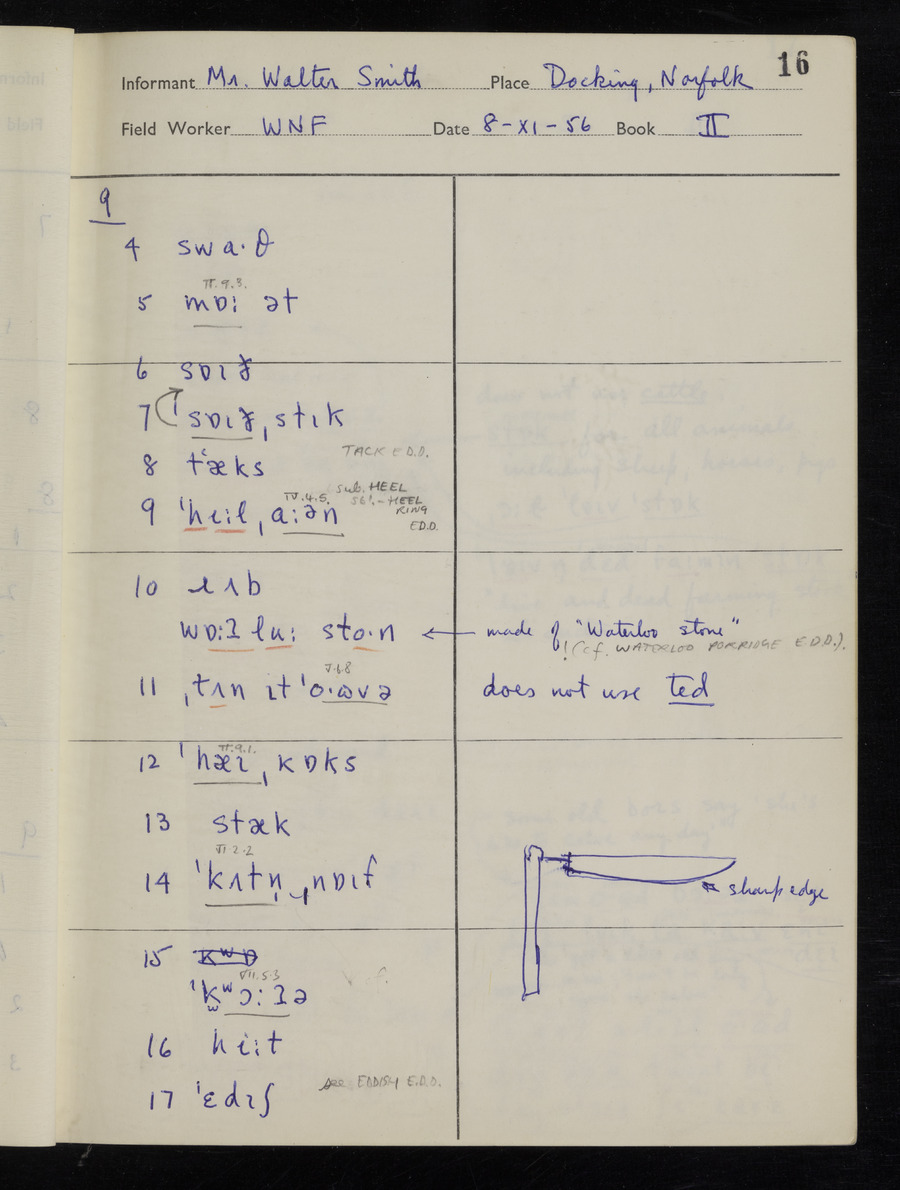 16
Informant Mr. Walter Smith Place Docking, Norfolk
Field Worker WNF Date 8-XI-56 Book II
9
4 swa·θ
II.9.3.
5 mɒi ət
6 sɒɪð
7 ˈsɒɪð ˌstɪk
TACK E.D.D.
8 tʻæks
IV.4.5. sub. HEEL
sb¹. - HEEL
RING
E.D.D.
9 ˈhɛi:l ˌa:ən
10 ɹʌb
wɒ:ɹlu: sto·n ← made of "Waterloo stone"
! (cf. WATERLOO PORRIDGE E.D.D.).
V.6.8
11 ˌtʌn ɪt ˈo·ʊvə does not use ted
II.9.1.
12 ˈhæɪ ˌkɒks
13 stæk
VI 2.2
14 ˈkʌtn̩ ˌnɒɪf
sharp edge
15
VII.5.3
16 hi:t
see EDDISH E.D.D.
17 ˈɛdɪʃ